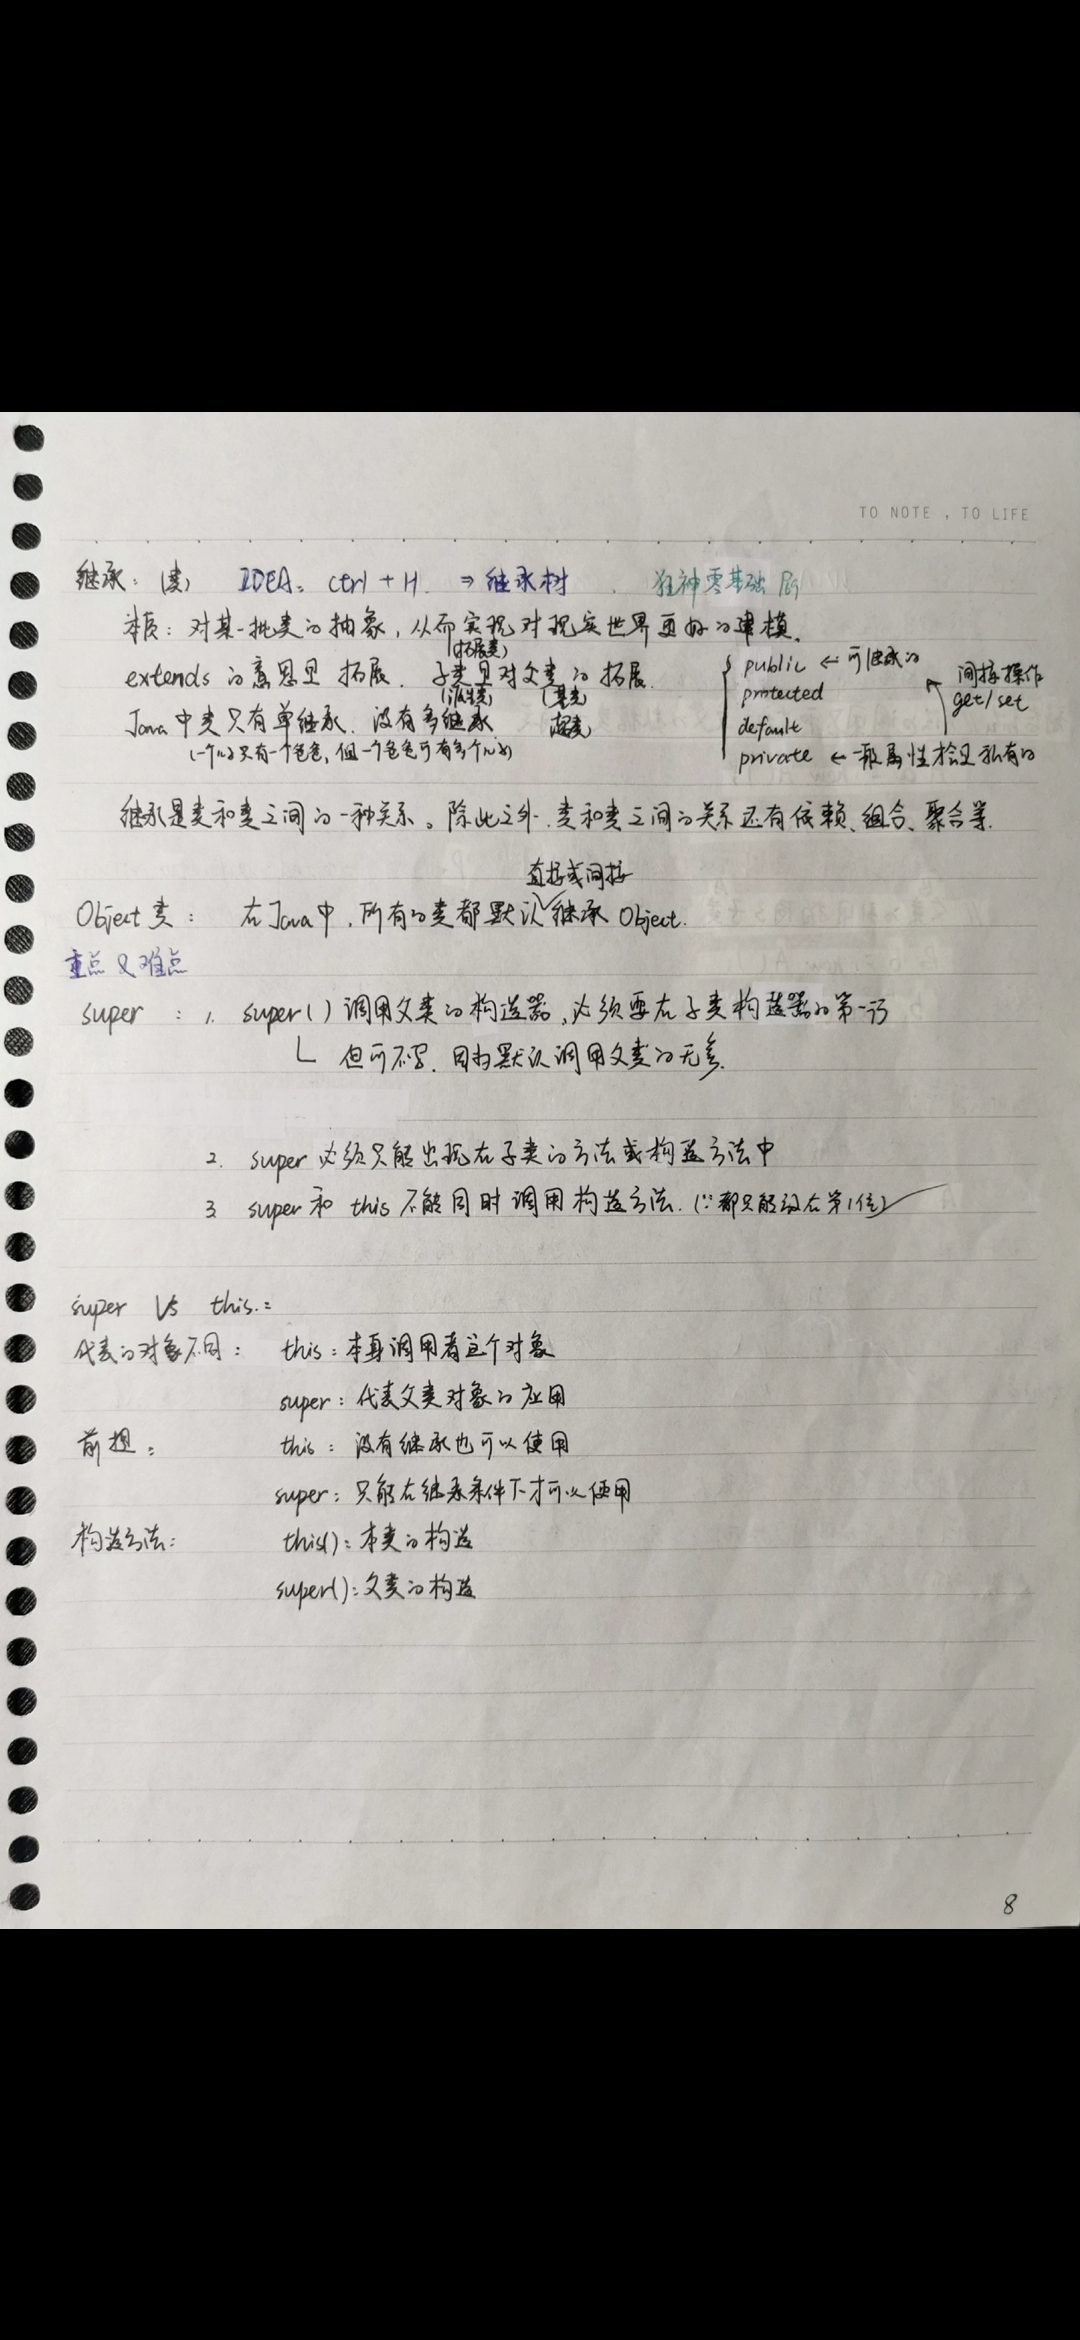 TO NOTE , TO LIFE
继承: (类) IDEA: ctrl + H ⇒ 继承树 狂神零基础
本质: 对某一批类的抽象, 从而实现对现实世界更好的建模。
(拓展类)
extends 的意思是 拓展. 子类是对父类的拓展.
(派生类) (基类)
Java 中类只有单继承. 没有多继承 超类)
(一个儿子只有一个爸爸, 但一个爸爸可有多个儿子)
public ← 可继承的
protected
default
private ← 一般属性才会是私有的
间接操作
get/set
继承是类和类之间的一种关系。除此之外, 类和类之间的关系还有依赖、组合、聚合等.
直接或间接
Object 类: 在 Java 中, 所有的类都默认继承 Object.
重点又难点
super : 1. super() 调用父类的构造器, 必须要在子类构造器的第一行
但可不写. 因为默认调用父类的无参.
2. super 必须只能出现在子类的方法或构造方法中
3. super 和 this 不能同时调用构造方法. (∵都只能放在第1位)
super VS this:
代表的对象不同: this: 本身调用者这个对象
super: 代表父类对象的应用
前提: this: 没有继承也可以使用
super: 只能在继承条件下才可以使用
构造方法: this(): 本类的构造
super(): 父类的构造
8